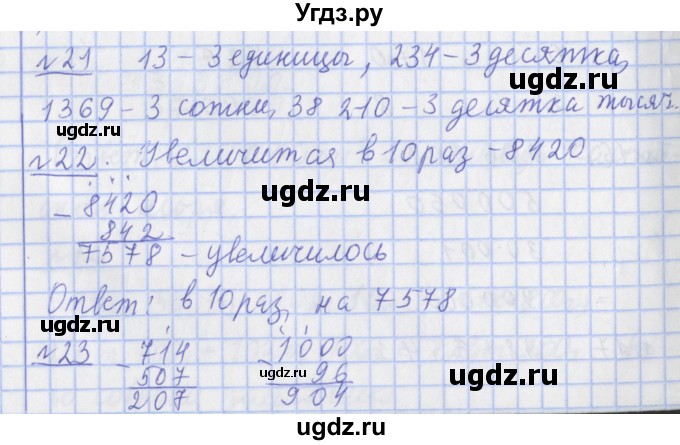 Угдз.ру
№21 13 – 3 единицы, 234 – 3 десятка,
ugdz.ru
1369 – 3 сотни, 38 210 – 3 десятка тысяч.
ugdz.ru
№22. Увеличится в 10 раз – 8420
ugdz.ru
– 8420
ugdz.ru
842
7578 – увеличилось
ugdz.ru
Ответ: в 10 раз, на 7578
ugdz.ru
№23 – 714 – 1000
ugdz.ru
507 96
207 904